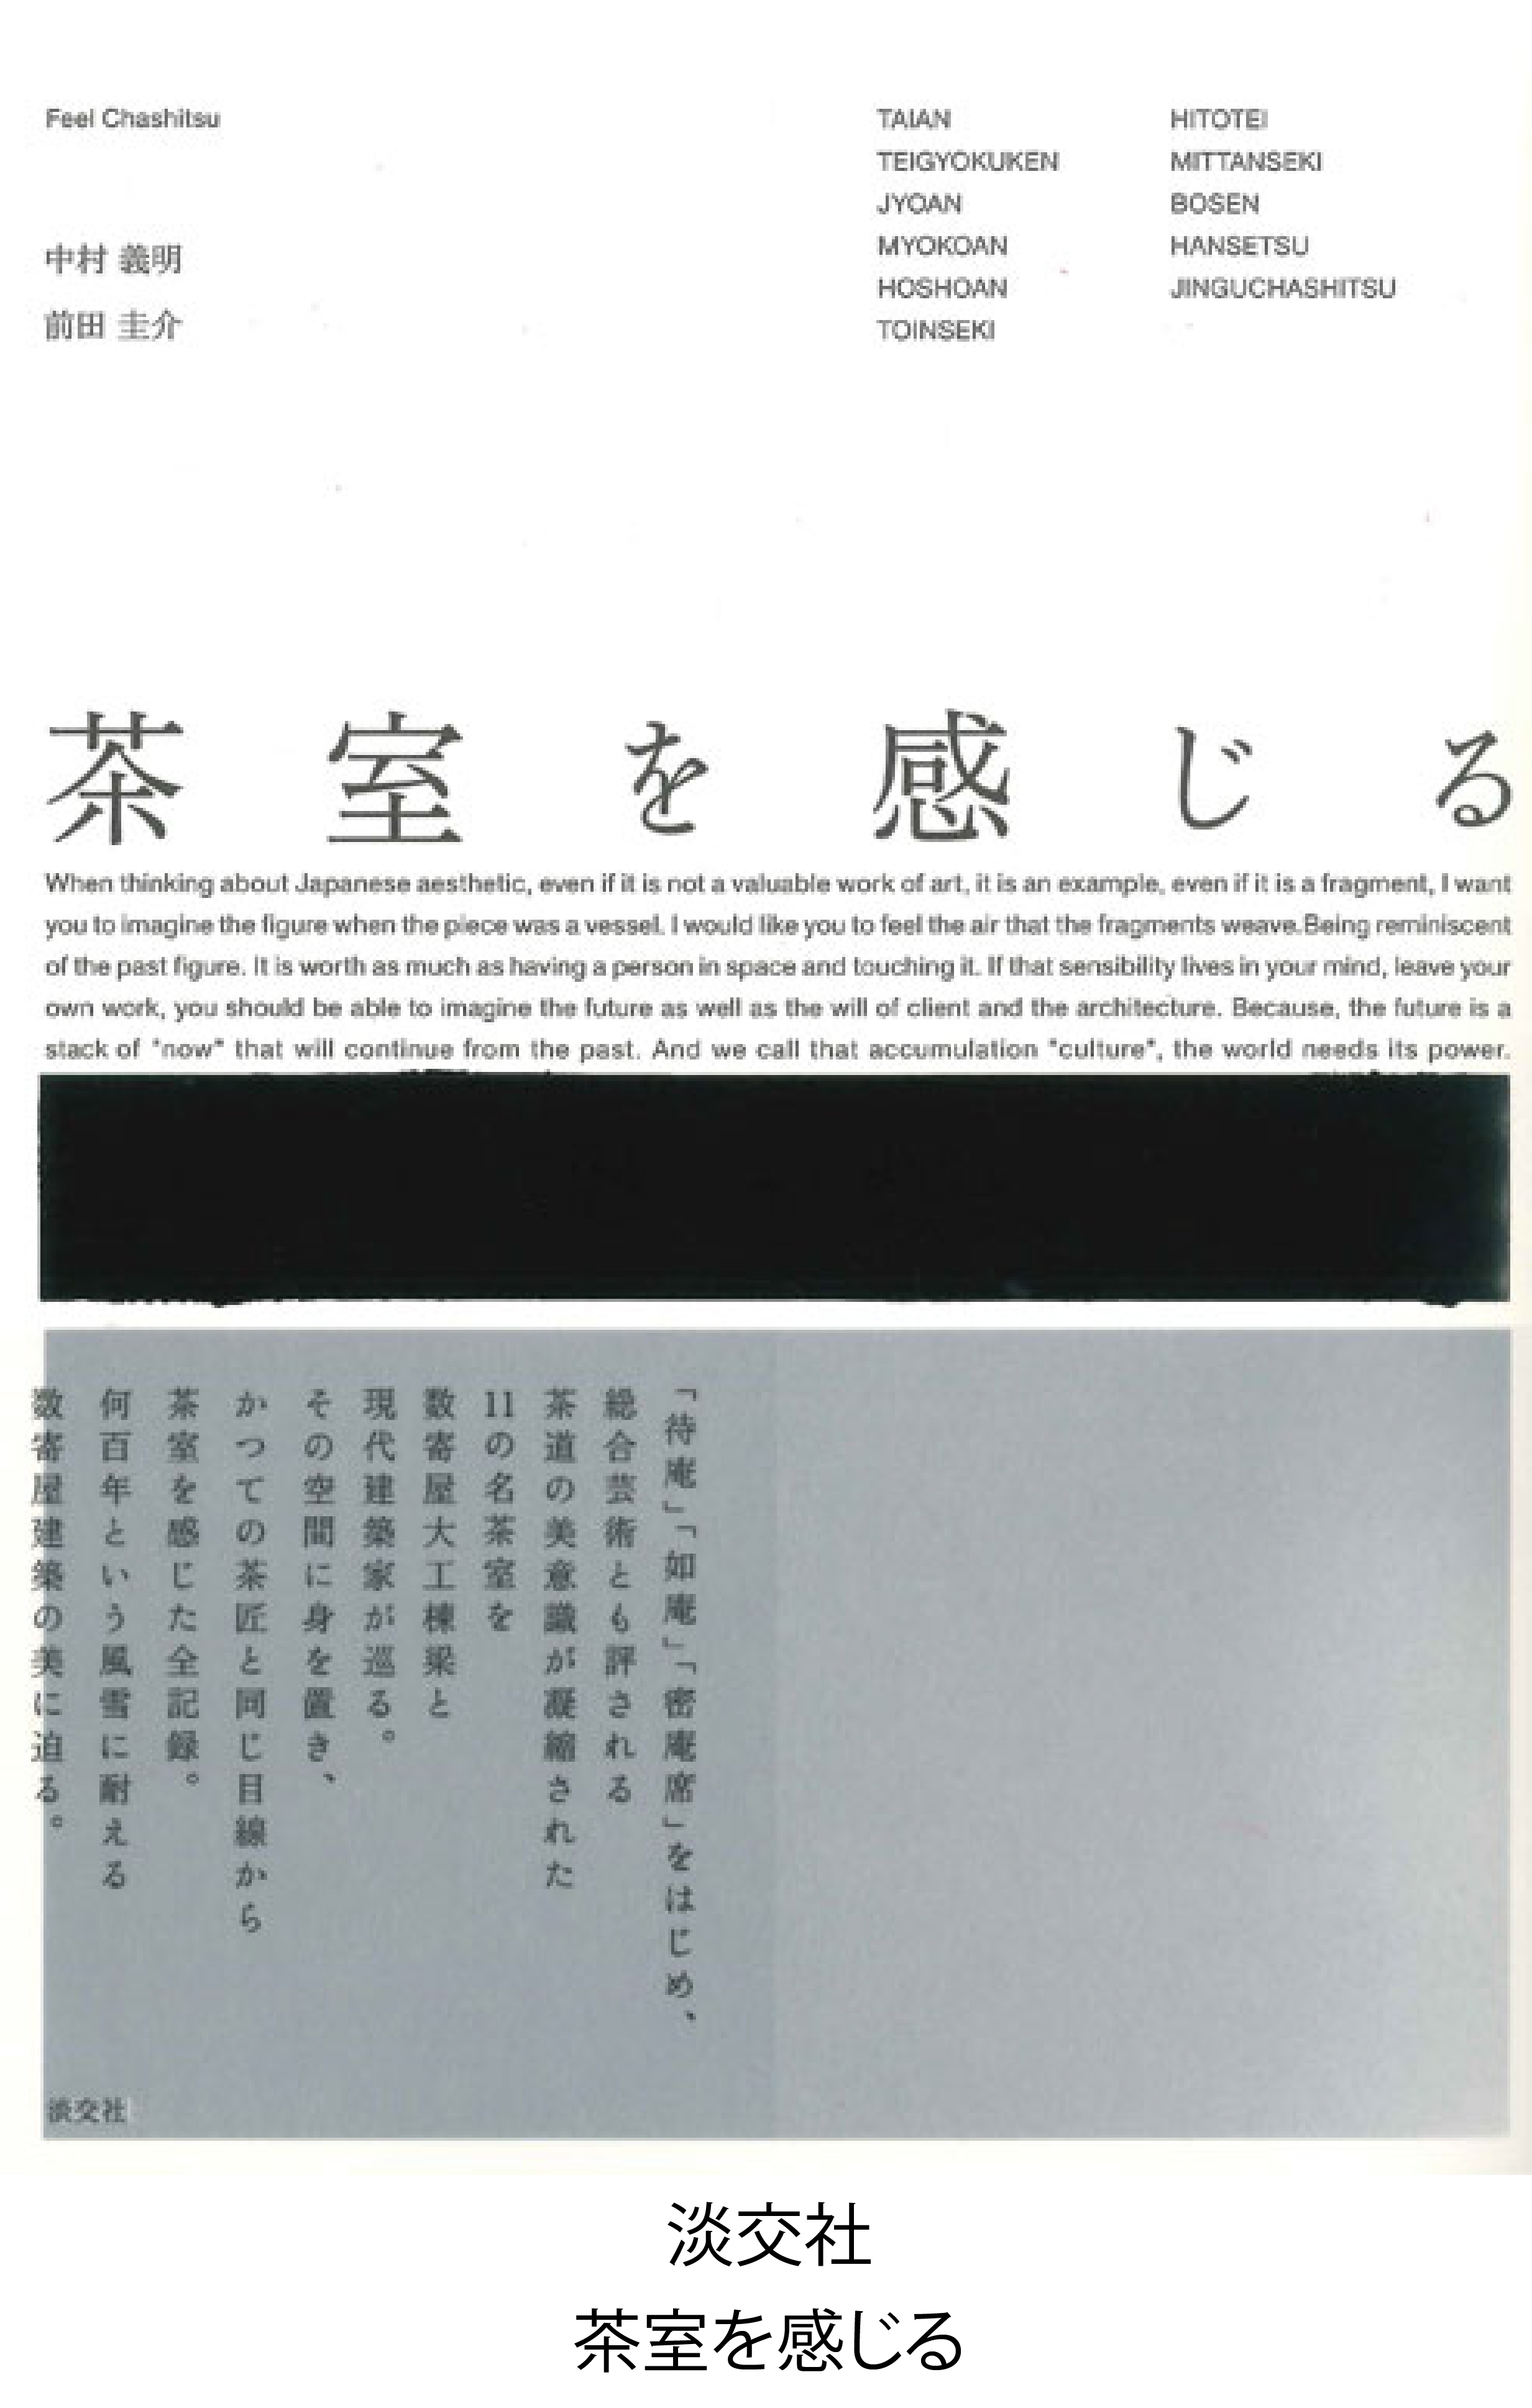 Feel Chashitsu
中村 義明
前田 圭介
TAIAN
TEIGYOKUKEN
JYOAN
MYOKOAN
HOSHOAN
TOINSEKI
HITOTEI
MITTANSEKI
BOSEN
HANSETSU
JINGUCHASHITSU
茶室を感じる
When thinking about Japanese aesthetic, even if it is not a valuable work of art, it is an example, even if it is a fragment, I want
you to imagine the figure when the piece was a vessel. I would like you to feel the air that the fragments weave.Being reminiscent
of the past figure. It is worth as much as having a person in space and touching it. If that sensibility lives in your mind, leave your
own work, you should be able to imagine the future as well as the will of client and the architecture. Because, the future is a
stack of "now" that will continue from the past. And we call that accumulation "culture", the world needs its power.
「待庵」「如庵」「密庵席」をはじめ、
総合芸術とも評される
茶道の美意識が凝縮された
11の名茶室を
数寄屋大工棟梁と
現代建築家が巡る。
その空間に身を置き、
かつての茶匠と同じ目線から
茶室を感じた全記録。
何百年という風雪に耐える
数寄屋建築の美に迫る。
淡交社
淡交社
茶室を感じる